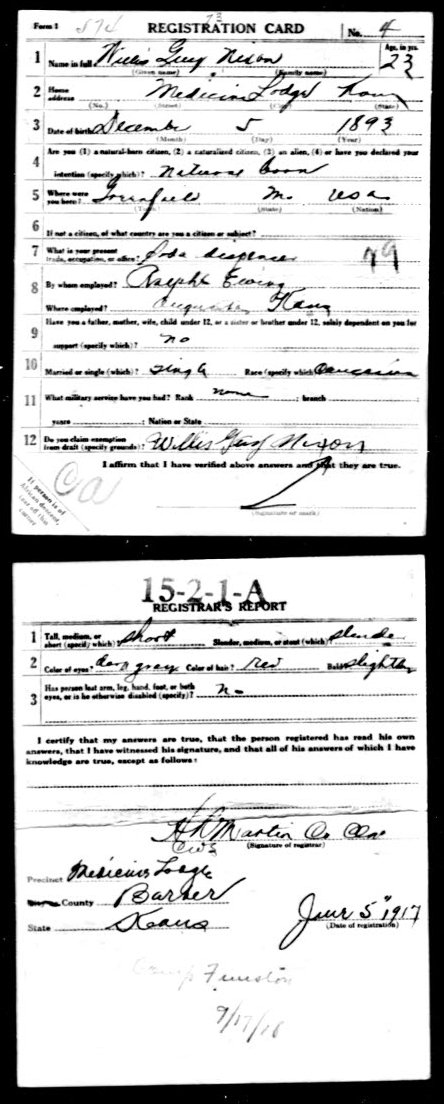 Form 1 574 REGISTRATION CARD 73 No. 4
1 Name in full Willis Guy Nixon Age, in yrs. 23
(Given name) (Family name)
2 Home address Medicine Lodge Kans
(No.) (Street) (City) (State)
3 Date of birth December 5 1893
(Month) (Day) (Year)
4 Are you (1) a natural-born citizen, (2) a naturalized citizen, (3) an alien, (4) or have you declared your
intention (specify which)? Natural born
5 Where were you born? Greenfield Mo. USA
(Town) (State) (Nation)
6 If not a citizen, of what country are you a citizen or subject?
7 What is your present trade, occupation, or office? Soda dispenser 49
8 By whom employed? Ralph Ewing
Where employed? Augusta, Kans
9 Have you a father, mother, wife, child under 12, or a sister or brother under 12, solely dependent on you for
support (specify which)? no
10 Married or single (which)? single Race (specify which)? Caucasian
11 What military service have you had? Rank none ; branch
years ; Nation or State
12 Do you claim exemption from draft (specify grounds)? Willis Guy Nixon
I affirm that I have verified above answers and that they are true.
(Signature or mark)
If person is of
African descent,
tear off this
corner
15-2-1-A
REGISTRAR'S REPORT
1 Tall, medium, or short (specify which)? Short Slender, medium, or stout (which)? slender
2 Color of eyes? dark gray Color of hair? Red Bald? Slightly
3 Has person lost arm, leg, hand, foot, or both
eyes, or is he otherwise disabled (specify)? No
I certify that my answers are true, that the person registered has read his own
answers, that I have witnessed his signature, and that all of his answers of which I have
knowledge are true, except as follows:
Martin Co Clk
(Signature of registrar)
Precinct Medicine Lodge
County Barber
State Kans June 5" 1917
(Date of registration)
Camp Funston
9/17/18